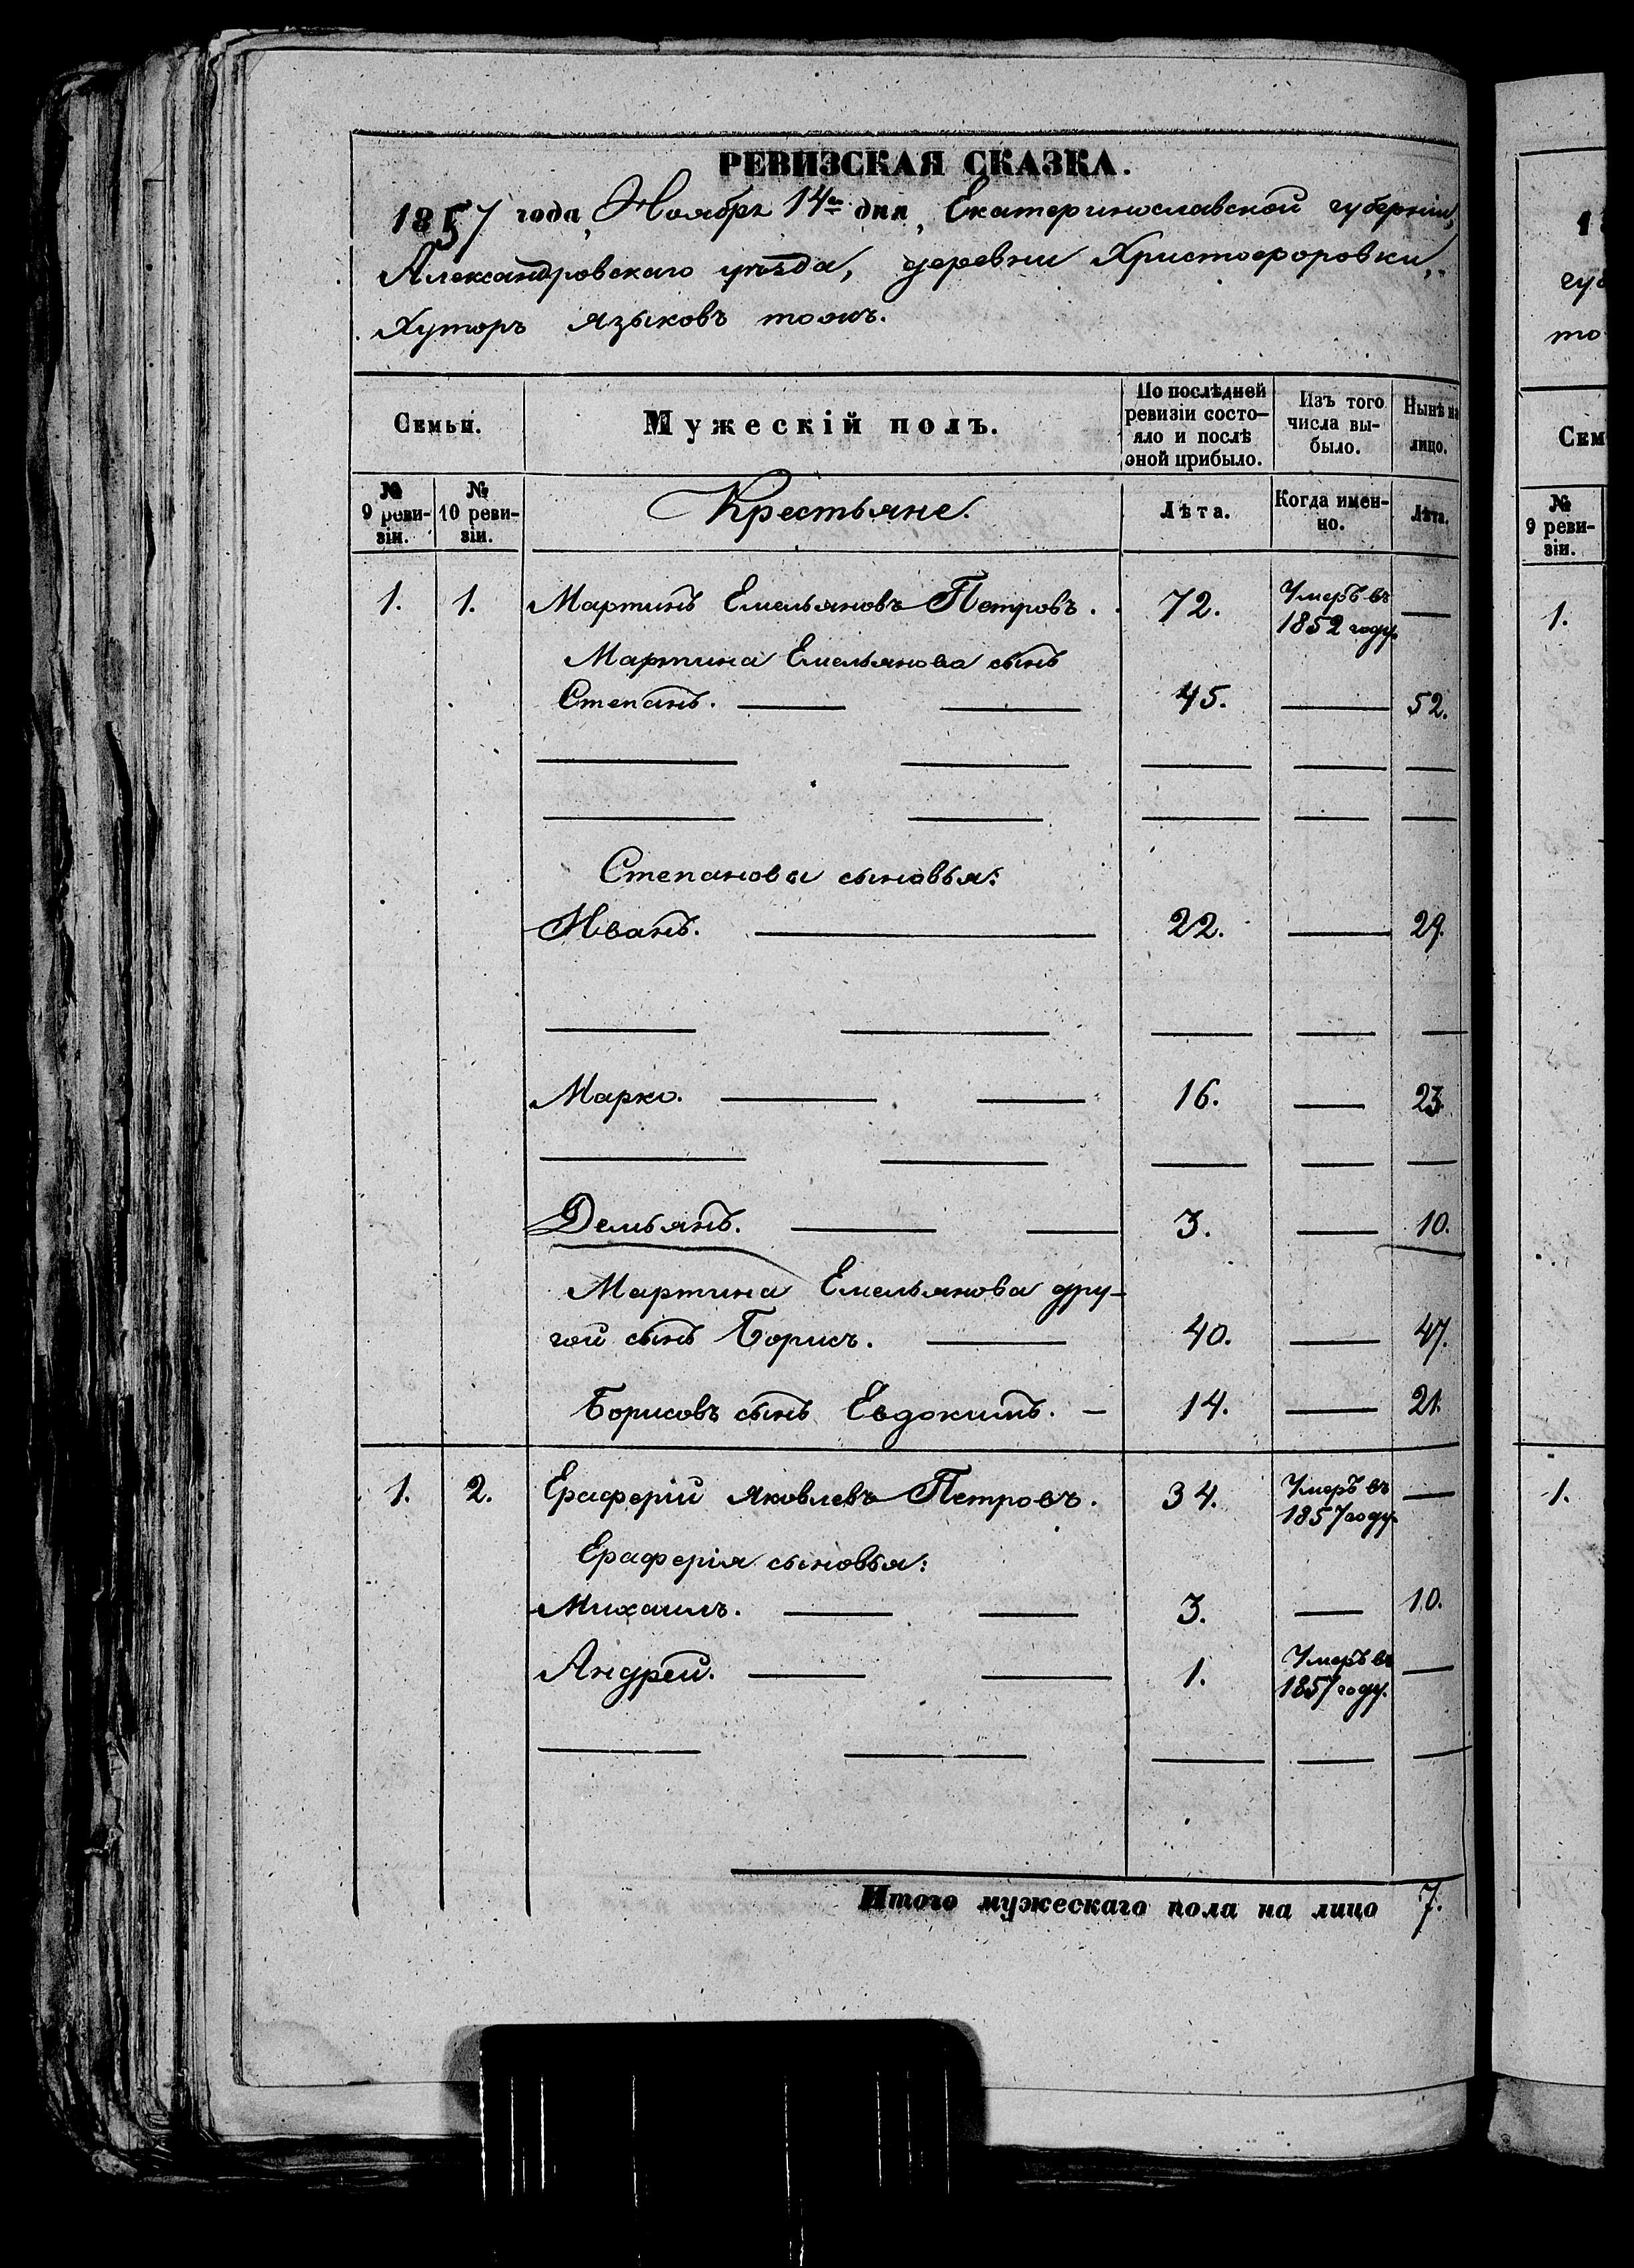 РЕВИЗСКАЯ СКАЗКА.
1857 года, Ноября 14го дня, Екатеринославской губернiи,
Александровскаго уѣзда, деревни Христофоровки,
Хуторъ Языковъ тожъ.
Семьи. Мужескiй полъ. По послѣдней ревизiи состо-яло и послѣ оной прибыло. Изъ того числа вы-было. Нынѣ на лицо.
№ 9 реви-зiи. № 10 реви-зiи. Крестьяне. Лѣта. Когда имен-но. Лѣта.
1. 1. Мартинъ Емельяновъ Петровъ. 72. Умеръ въ 1852 году. —
Мартина Емельянова сынъ
Степанъ. — — 45. — 52.
Степановы сыновья:
Иванъ. — 22. — 29.
Марко. — — 16. — 23.
Демьянъ. — — 3. — 10.
Мартина Емельянова дру-
гой сынъ Борисъ. — 40. — 47.
Борисовъ сынъ Евдокимъ. — 14. — 21.
1. 2. Ераферiй Яковлевъ Петровъ. 34. Умеръ въ 1857 году. —
Ераферiя сыновья:
Михаилъ. — — 3. — 10.
Андрей. — — 1. Умеръ въ 1857 году. —
Итого мужескаго пола на лицо 7.
1
гу
то
Сем
№
9 реви-
зiи.
1.
1.